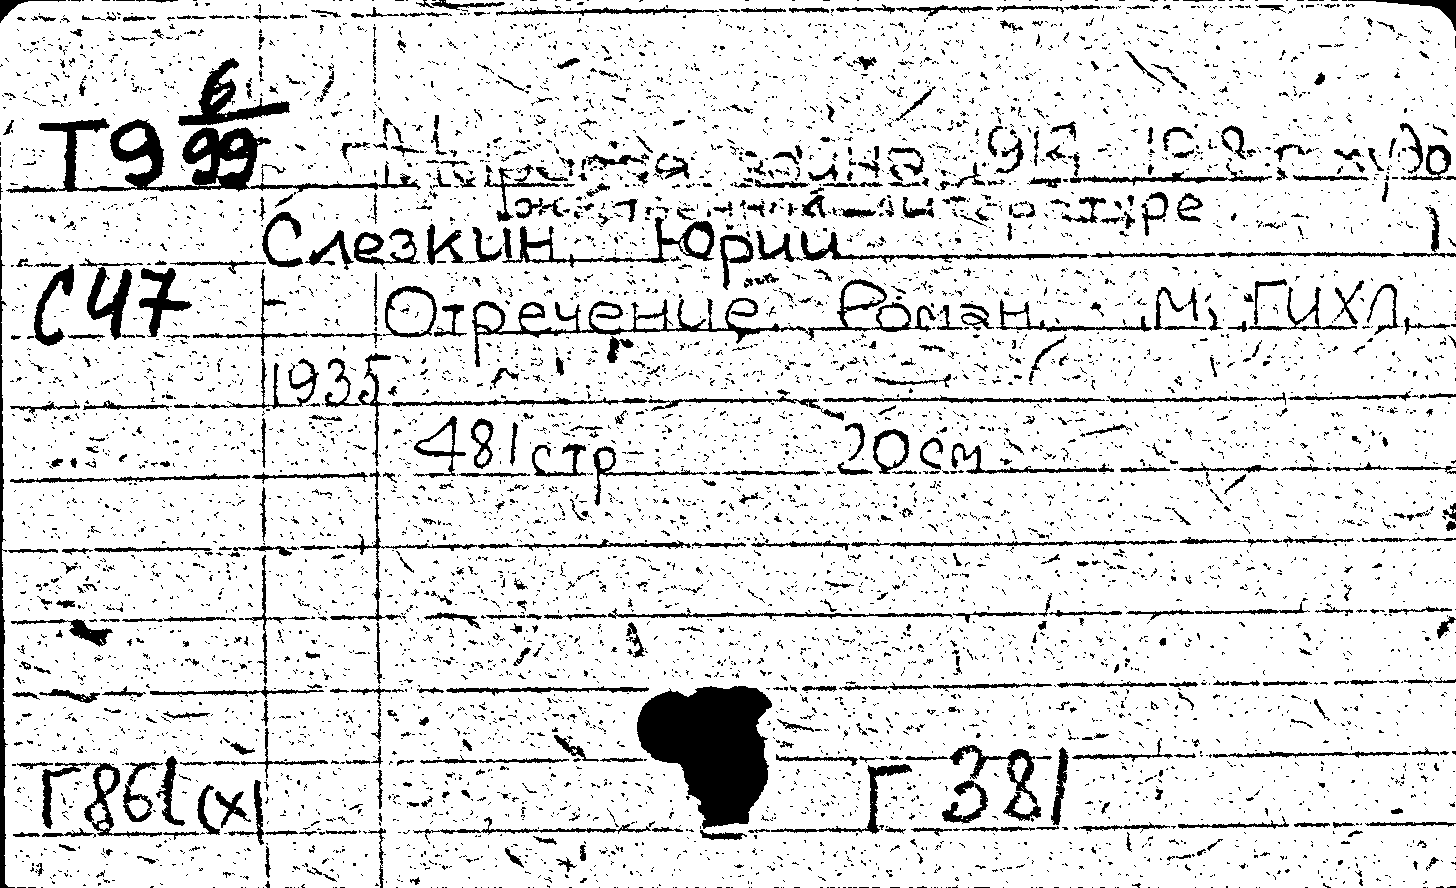 6
Т9 99 Мировая война 1914-1918 г. худо
жественной литературе.
Слезкин, Юрий
С47 Отречение. Роман. М, ГИХЛ,
1935.
481 стр 20 см.
Г861(х) Г381